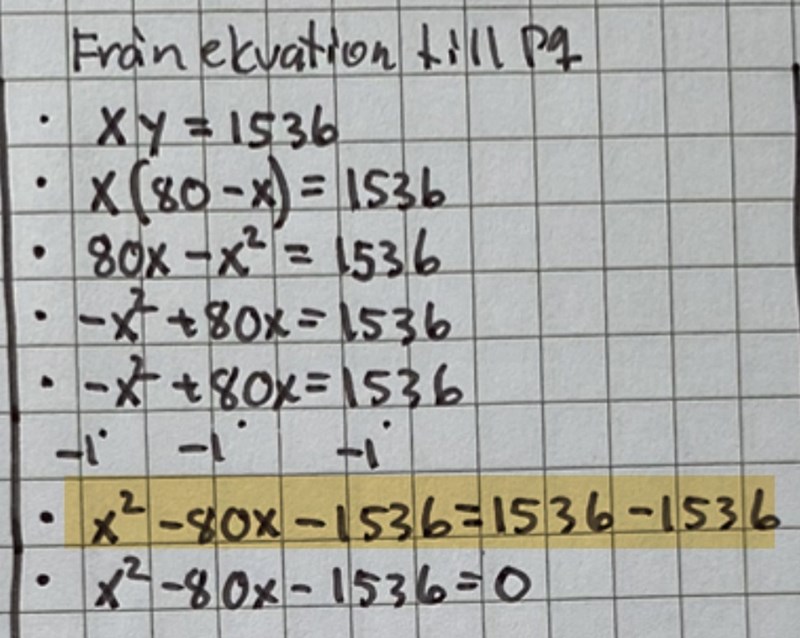 Från ekvation till pq
• xy = 1536
• x(80 - x) = 1536
• 80x - x² = 1536
• -x² + 80x = 1536
• -x² + 80x = 1536
-1· -1· -1·
• x² - 80x - 1536 = 1536 - 1536
• x² - 80x - 1536 = 0